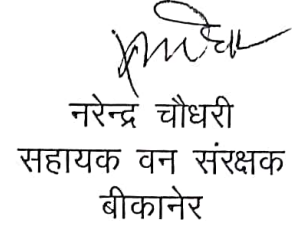 नरेन्द्र चौधरी
सहायक वन संरक्षक
बीकानेर